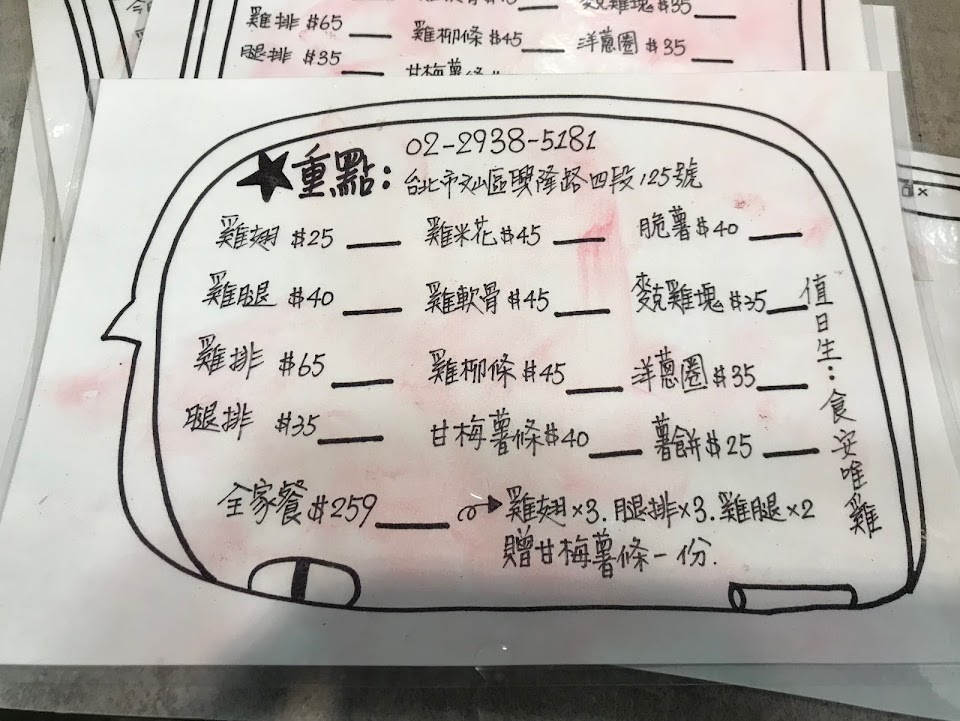 雞排 $65
雞柳條 $45
洋蔥圈 $35
腿排 $35
02-2938-5181
★重點:
台北市文山區興隆路四段125號
雞翅 $25 雞米花 $45 脆薯 $40
雞腿 $40 雞軟骨 $45 麥克雞塊 $35
雞排 $65 雞柳條 $45 洋蔥圈 $35
腿排 $35 甘梅薯條 $40 薯餅 $25
全家餐 $259 → 雞翅×3. 腿排×3. 雞腿×2
贈甘梅薯條一份.
值日生:食安唯雞